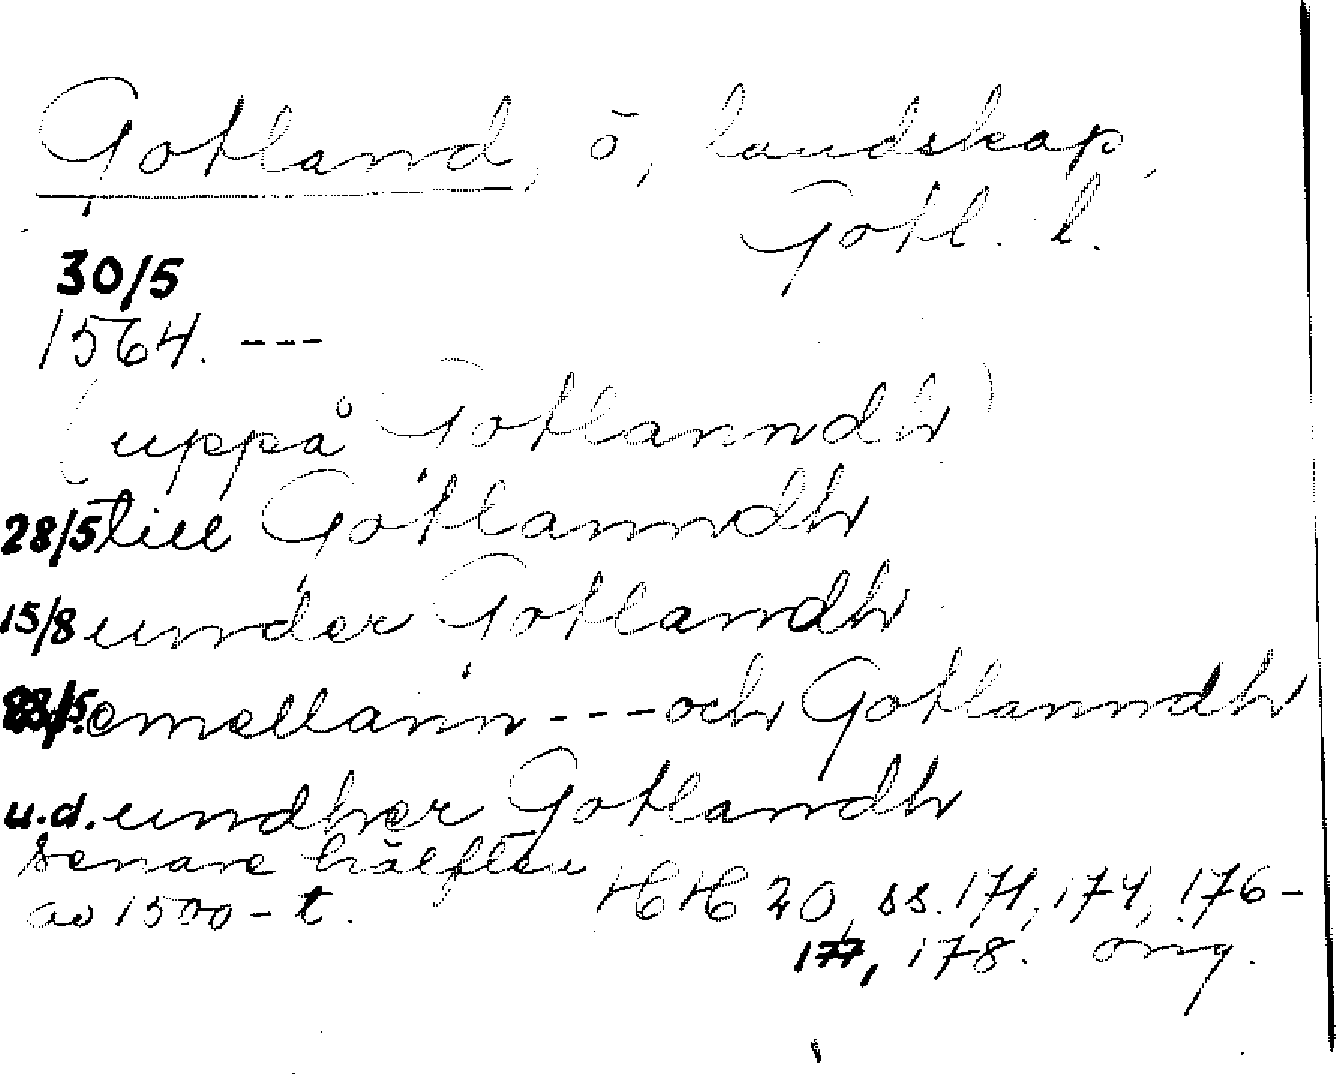 Gotland, ö, landskap,
Gotl. l.
30/5
1564. ---
(uppå Gotlanndh)
28/5 till Gotlanndh
15/8 under Gotlandh
emellann --- och Gotlanndh
u.d. undher Gotlandh
senare hälften
av 1500-t.
HH 20, ss. 171, 174, 176-
177, 178. orig.